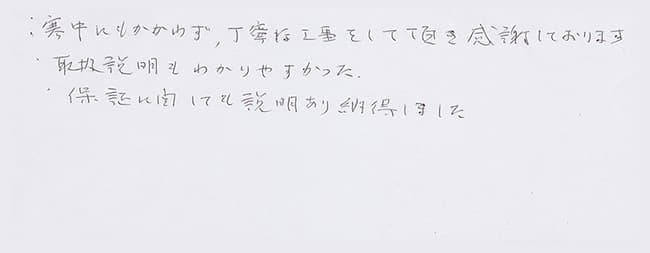 :寒中にもかかわず,丁寧な工事をして頂き感謝しております
・取扱説明もわかりやすかった.
・保証に関しても説明あり納得しました